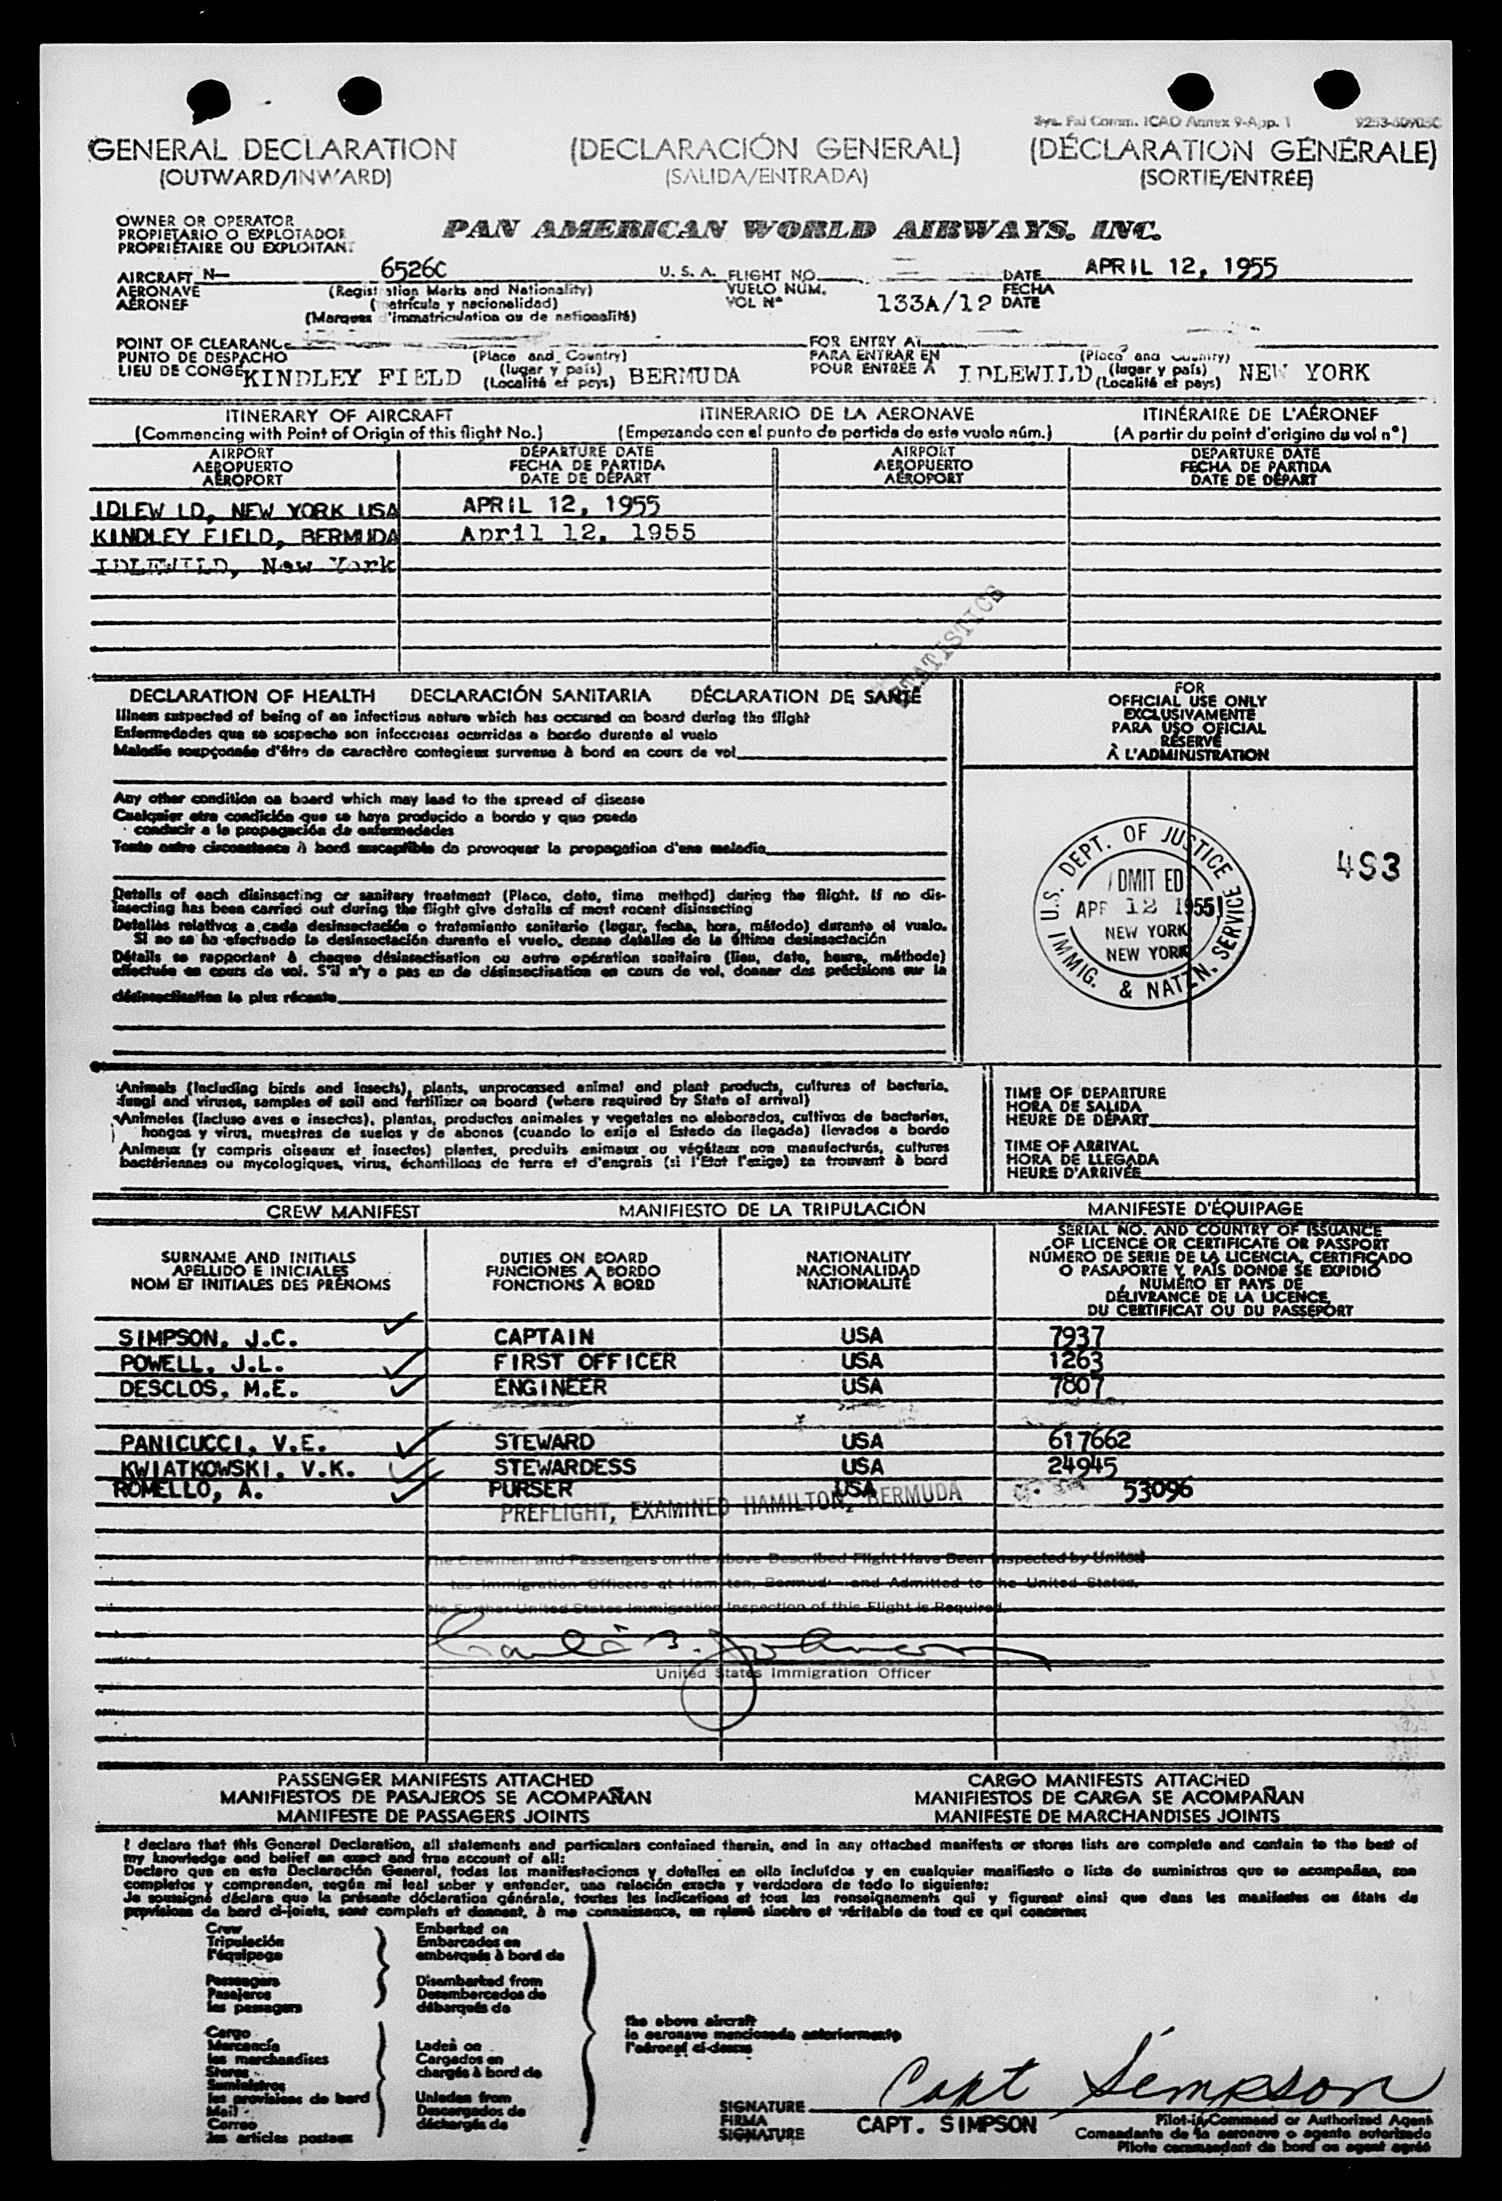 Sys. Fal Comm. ICAO Annex 9-App. 1
GENERAL DECLARATION (DECLARACIÓN GENERAL) (DÉCLARATION GÉNÉRALE)
(OUTWARD/INWARD) (SALIDA/ENTRADA) (SORTIE/ENTRÉE)
OWNER OR OPERATOR
PROPIETARIO O EXPLOTADOR
PROPRIÉTAIRE OU EXPLOITANT
PAN AMERICAN WORLD AIRWAYS, INC.
AIRCRAFT N— 6526C U. S. A. FLIGHT NO. DATE APRIL 12, 1955
AERONAVE (Registration Marks and Nationality) VUELO NÚM. FECHA
AÉRONEF (matrícula y nacionalidad) VOL Nº 133A/12 DATE
(Marques d'immatriculation ou de nationalité)
POINT OF CLEARANCE FOR ENTRY AT
PUNTO DE DESPACHO (Place and Country) PARA ENTRAR EN (Place and Country)
LIEU DE CONGÉ KINDLEY FIELD (lugar y país) BERMUDA POUR ENTRÉE À IDLEWILD (lugar y país) NEW YORK
(Localité et pays) (Localité et pays)
ITINERARY OF AIRCRAFT ITINERARIO DE LA AERONAVE ITINÉRAIRE DE L'AÉRONEF
(Commencing with Point of Origin of this flight No.) (Empezando con el punto de partida de este vuelo núm.) (A partir du point d'origine du vol nº)
AIRPORT DEPARTURE DATE AIRPORT DEPARTURE DATE
AEROPUERTO FECHA DE PARTIDA AEROPUERTO FECHA DE PARTIDA
AÉROPORT DATE DE DÉPART AÉROPORT DATE DE DÉPART
IDLEW LD, NEW YORK USA APRIL 12, 1955
KINDLEY FIELD, BERMUDA April 12, 1955
IDLEWILD, New York
STATISTICS
DECLARATION OF HEALTH DECLARACIÓN SANITARIA DÉCLARATION DE SANTÉ
Illness suspected of being of an infectious nature which has occured on board during the flight
Enfermedades que se sospecha son infecciosas ocurridas a bordo durante el vuelo
Maladie soupçonnée d'être de caractère contagieux survenue à bord en cours de vol
Any other condition on board which may lead to the spread of disease
Cualquier otra condición que se haya producido a bordo y que pueda
conducir a la propagación de enfermedades
Toute autre circonstance à bord susceptible de provoquer la propagation d'une maladie
Details of each disinsecting or sanitary treatment (Place, date, time method) during the flight. If no dis-
insecting has been carried out during the flight give details of most recent disinsecting
Detalles relativos a cada desinsectación o tratamiento sanitario (lugar, fecha, hora, método) durante el vuelo.
Si no se ha efectuado la desinsectación durante el vuelo, dense detalles de la última desinsectación
Détails se rapportant à chaque désinsectisation ou autre opération sanitaire (lieu, date, heure, méthode)
effectuée en cours de vol. S'il n'y a pas eu de désinsectisation en cours de vol, donner des précisions sur la
désinsectisation la plus récente
FOR
OFFICIAL USE ONLY
EXCLUSIVAMENTE
PARA USO OFICIAL
RÉSERVÉ
À L'ADMINISTRATION
U.S. DEPT. OF JUSTICE
IMMIG. & NATZN. SERVICE
DMIT ED
APR 12 1955
NEW YORK
NEW YORK
493
Animals (including birds and insects), plants, unprocessed animal and plant products, cultures of bacteria,
fungi and viruses, samples of soil and fertilizer on board (where required by State of arrival)
Animales (incluso aves e insectos), plantas, productos animales y vegetales no elaborados, cultivos de bacterias,
hongos y virus, muestras de suelos y de abonos (cuando lo exija el Estado de llegada) llevados a bordo
Animaux (y compris oiseaux et insectes) plantes, produits animaux ou végétaux non manufacturés, cultures
bactériennes ou mycologiques, virus, échantillons de terre et d'engrais (si l'État l'exige) se trouvant à bord
TIME OF DEPARTURE
HORA DE SALIDA
HEURE DE DÉPART
TIME OF ARRIVAL
HORA DE LLEGADA
HEURE D'ARRIVÉE
CREW MANIFEST MANIFIESTO DE LA TRIPULACIÓN MANIFESTE D'ÉQUIPAGE
SURNAME AND INITIALS
APELLIDO E INICIALES
NOM ET INITIALES DES PRÉNOMS
DUTIES ON BOARD
FUNCIONES A BORDO
FONCTIONS À BORD
NATIONALITY
NACIONALIDAD
NATIONALITÉ
SERIAL NO. AND COUNTRY OF ISSUANCE
OF LICENCE OR CERTIFICATE OR PASSPORT
NÚMERO DE SERIE DE LA LICENCIA, CERTIFICADO
O PASAPORTE Y PAÍS DONDE SE EXPIDIÓ
NUMÉRO ET PAYS DE
DÉLIVRANCE DE LA LICENCE,
DU CERTIFICAT OU DU PASSEPORT
SIMPSON, J.C. CAPTAIN USA 7937
POWELL, J.L. FIRST OFFICER USA 1263
DESCLOS, M.E. ENGINEER USA 7807
PANICUCCI, V.E. STEWARD USA 617662
KWIATKOWSKI, V.K. STEWARDESS USA 24945
ROMELLO, A. PURSER USA 53096
PREFLIGHT, EXAMINED HAMILTON, BERMUDA
The Crewmen and Passengers on the Above Described Flight Have Been Inspected by United
tes Immigration Officers at Hamilton, Bermuda and Admitted to the United States.
No Further United States Immigration Inspection of this Flight is Required.
United States Immigration Officer
PASSENGER MANIFESTS ATTACHED CARGO MANIFESTS ATTACHED
MANIFIESTOS DE PASAJEROS SE ACOMPAÑAN MANIFIESTOS DE CARGA SE ACOMPAÑAN
MANIFESTE DE PASSAGERS JOINTS MANIFESTE DE MARCHANDISES JOINTS
I declare that this General Declaration, all statements and particulars contained therein, and in any attached manifests or stores lists are complete and contain to the best of
my knowledge and belief an exact and true account of all:
Declaro que en esta Declaración General, todas las manifestaciones y detalles en ella incluídos y en cualquier manifiesto o lista de suministros que se acompañan, son
completos y comprenden, según mi leal saber y entender, una relación exacta y verdadera de todo lo siguiente:
Je soussigné déclare que la présente déclaration générale, toutes les indications et tous les renseignements qui y figurent ainsi que dans les manifestes ou états de
provisions de bord ci-joints, sont complets et donnent, à ma connaissance, un relevé sincère et véritable de tout ce qui concerne:
Crew Embarked on
Tripulación Embarcados en
l'équipage embarqués à bord de
Passengers Disembarked from
Pasajeros Desembarcados de
les passagers débarqués de
the above aircraft
la aeronave mencionada anteriormente
l'aéronef ci-dessus
Cargo
Mercancía Laden on
les marchandises Cargados en
Stores chargés à bord de
Suministros
les provisions de bord Unladen from
Mail Descargados de
Correo déchargés de
les articles postaux
Capt Simpson
SIGNATURE
FIRMA CAPT. SIMPSON
SIGNATURE
Pilot-in-Command or Authorized Agent
Comandante de la aeronave o agente autorizado
Pilote commandant de bord ou agent agréé